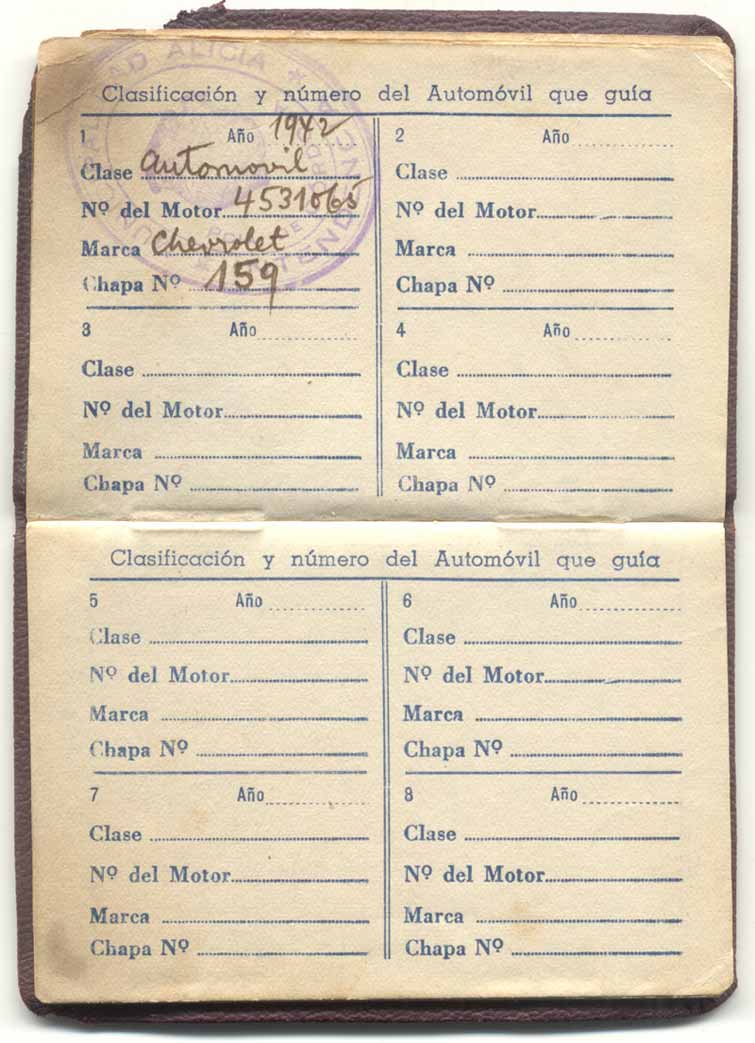 ALICIA
Clasificación y número del Automóvil que guía
1 Año 1942
Clase Automovil
Nº del Motor 4531065
Marca Chevrolet
Chapa Nº 159
2 Año
Clase
Nº del Motor
Marca
Chapa Nº
3 Año
Clase
Nº del Motor
Marca
Chapa Nº
4 Año
Clase
Nº del Motor
Marca
Chapa Nº
Clasificación y número del Automóvil que guía
5 Año
Clase
Nº del Motor
Marca
Chapa Nº
6 Año
Clase
Nº del Motor
Marca
Chapa Nº
7 Año
Clase
Nº del Motor
Marca
Chapa Nº
8 Año
Clase
Nº del Motor
Marca
Chapa Nº